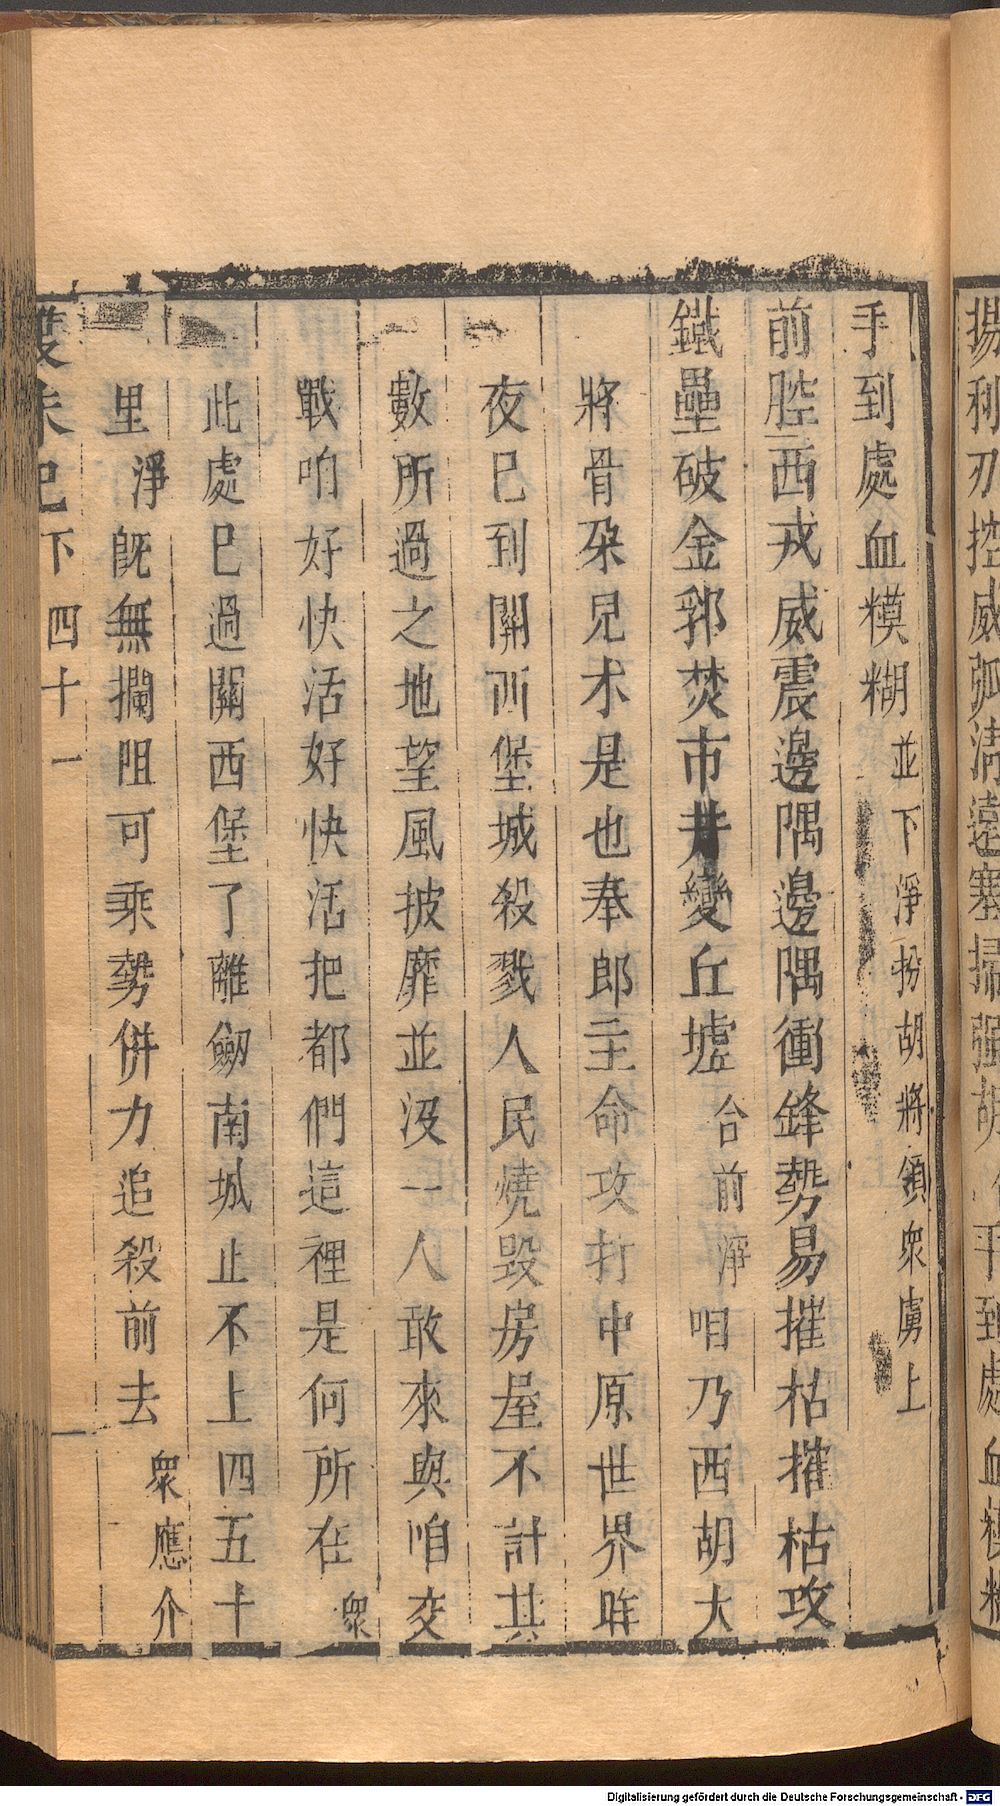 揚利刃控威弧清遠塞掃強胡
平到處血模糊
手到處血糢糊並下淨扮胡將領衆虜上
前腔西戎威震邊隅邊隅衝鋒勢易摧枯摧枯攻
鐵壘破金郛焚市井變丘墟合前淨咱乃西胡大
將骨朶兒朮是也奉郎主命攻打中原世界昨
夜已到關西堡城殺戮人民燒毀房屋不計其
數所過之地望風披靡並沒一人敢來與咱交
戰咱好快活好快活把都們這裡是何所在衆
此處已過關西堡了離劒南城止不上四五十
里淨旣無攔阻可乘勢併力追殺前去衆應介
雙朱記下四十一
Digitalisierung gefördert durch die Deutsche Forschungsgemeinschaft - DFG